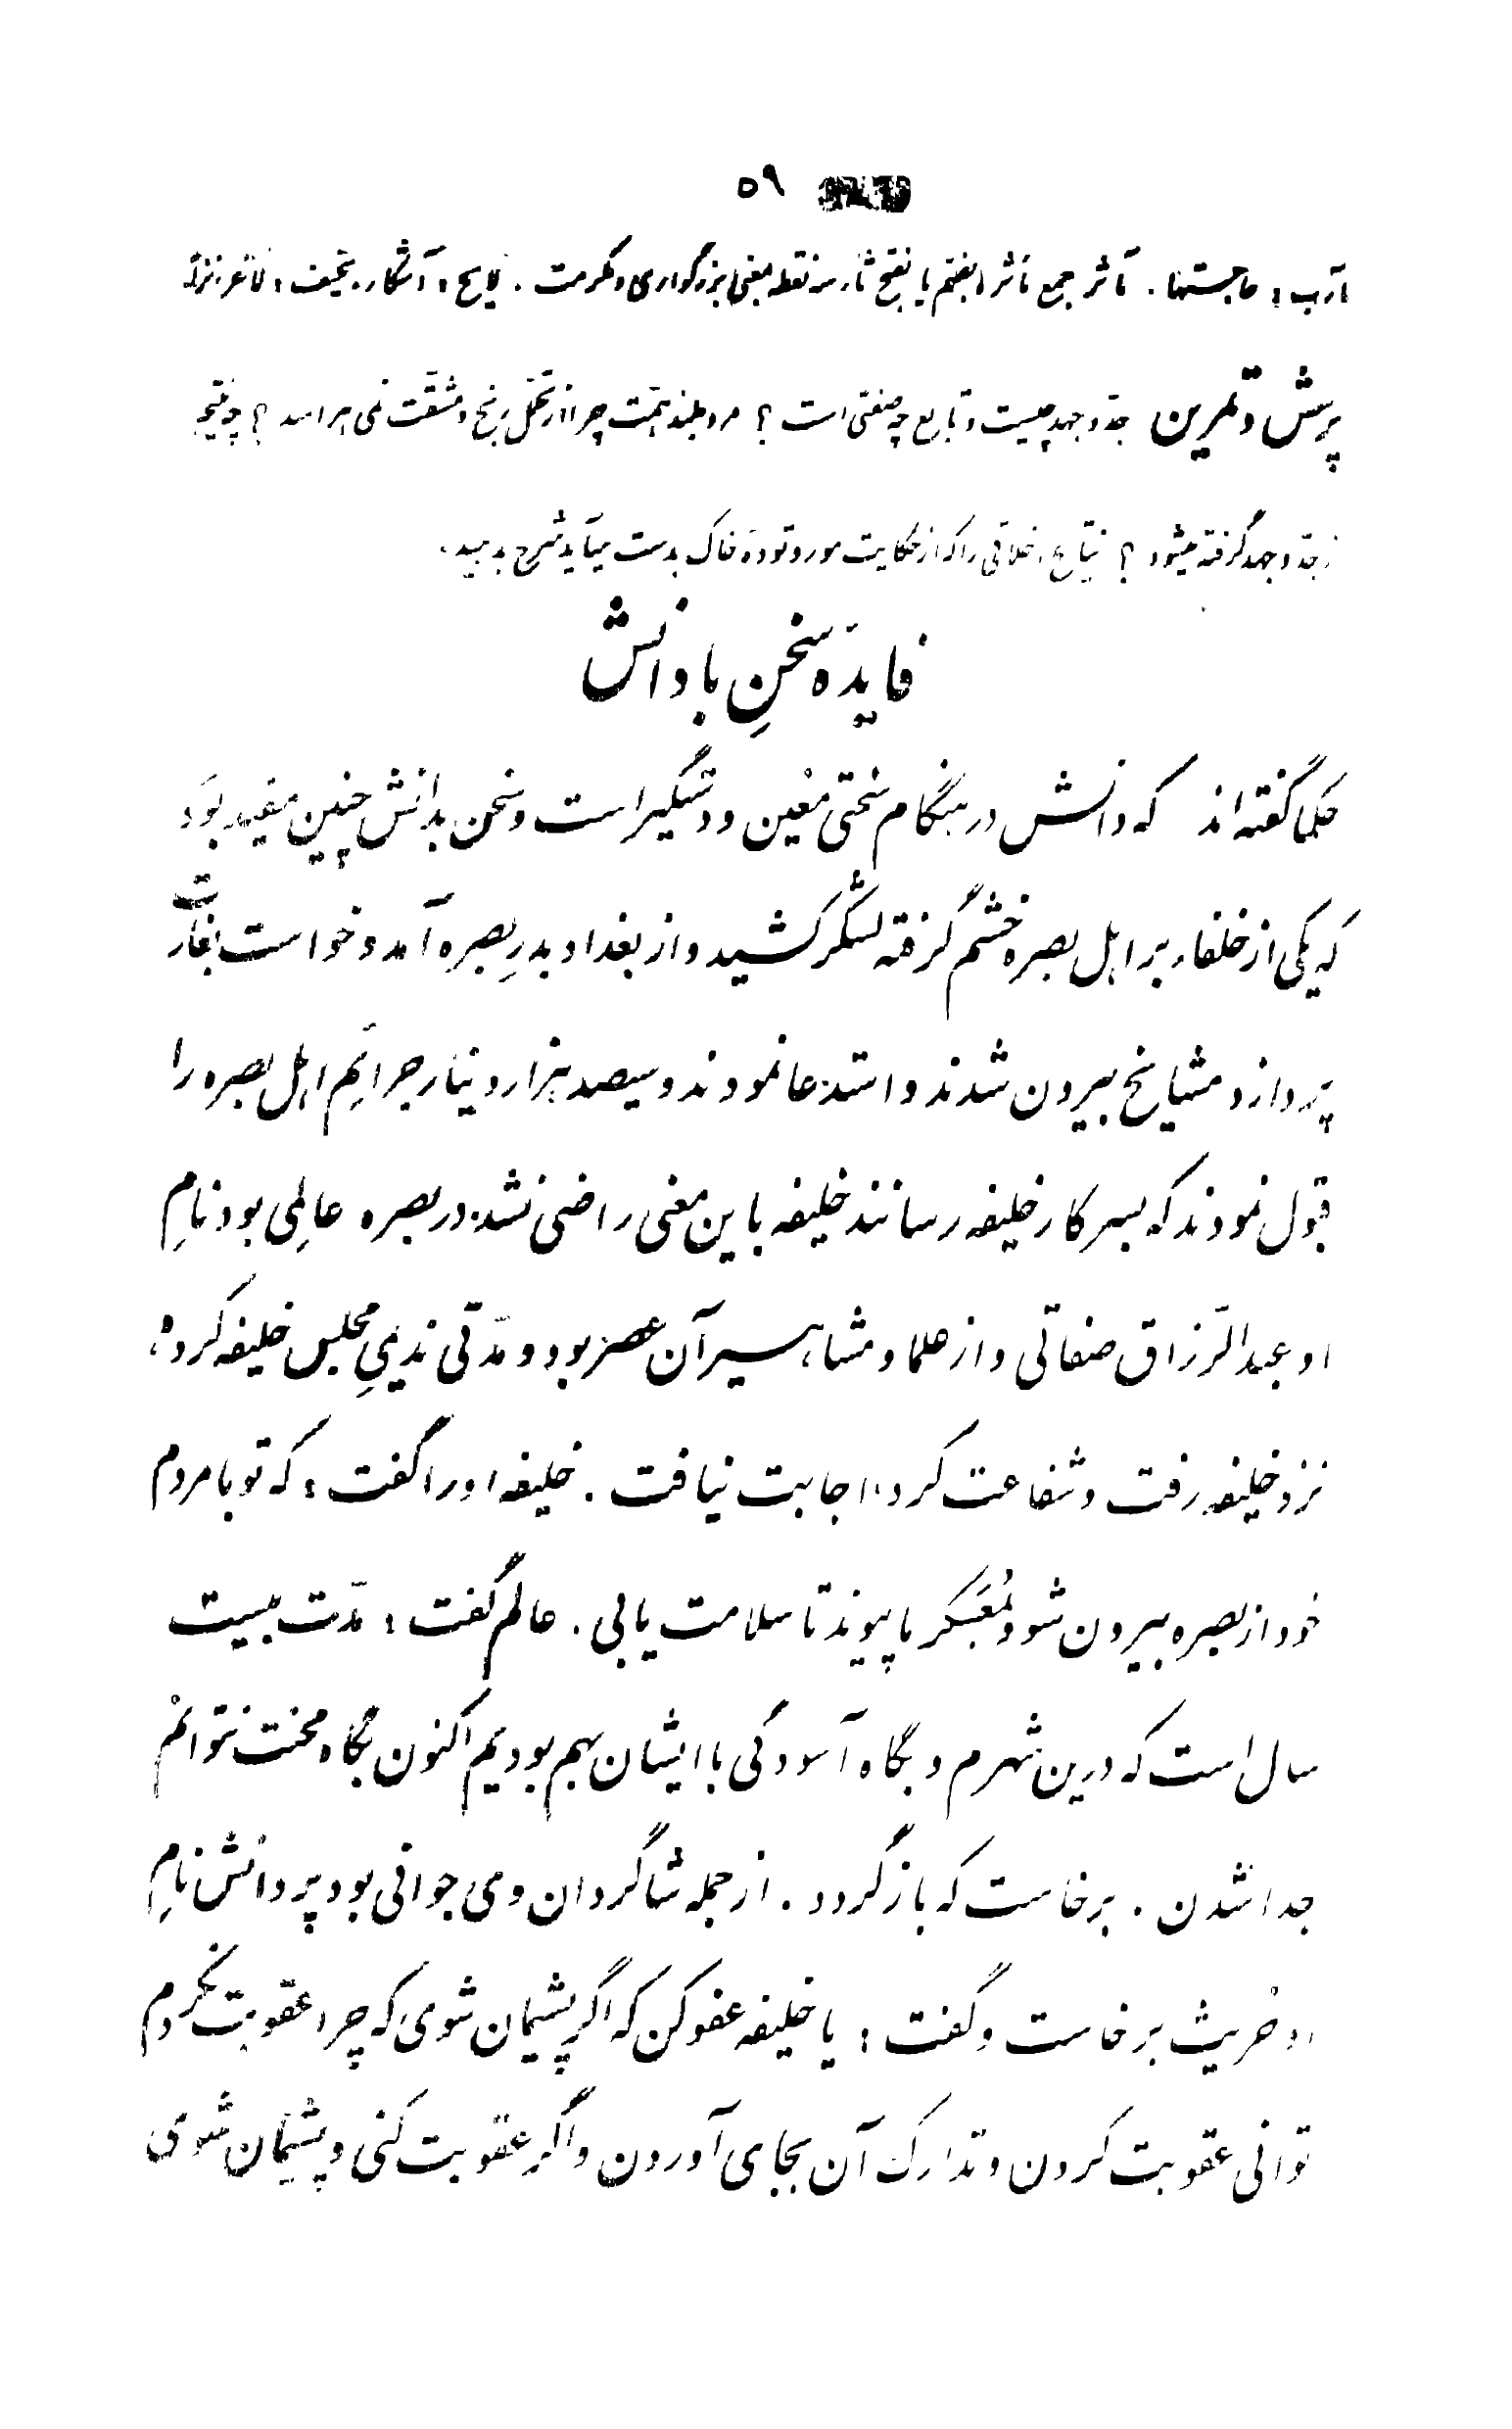 ۵۹
مآرب: حاجتها. مآثر جمع مأثره بضم یا بفتح ثاء سه نقطه بمعنی بزرگواری و مکرمت. لایح: آشکار. نحیف: لاغر نزار
پرسش و تمرین جد و جهد چیست و تابع چه صفتی است؟ مرد بلند همت چرا از تحمل رنج و مشقت نمی هراسد؟ چه نتیجه
از جد و جهد گرفته میشود؟ نتایج اخلاقی را که از حکایت مور و توده خاک بدست میآید شرح بدهید.
فایدهٔ سخنِ با دانش
حکما گفته‌اند که دانش در هنگام سختی مُعین و دستگیر است و سخن بدانش چنین مفید بوَد
که یکی از خلفاء بر اهل بصره خشم گرفته لشگر کشید و از بغداد بدرِ بصره آمد و خواست بغارت
پردازد مشایخ بیرون شدند و استدعا نمودند و سیصد هزار دینار جرائم اهل بصره را
قبول نمودند که بسرکار خلیفه رسانند خلیفه باین معنی راضی نشد. در بصره عالِمی بود نامِ
او عبدالرّزاق صنعانی و از علما و مشاهیر آن عصر بود و مدّتی ندیمیِ مجلس خلیفه کرده،
نزد خلیفه رفت و شفاعت کرد، اجابت نیافت. خلیفه او را گفت: که تو با مردم
خود از بصره بیرون شو و بمُعَسکر ما پیوند تا سلامت یابی. عالم گفت: مدّت بیست
سال است که درین شهرم و بگاه آسودگی با ایشان بهم بودیم اکنون بگاه محنت نتوانم
جدا شدن. برخاست که باز گردد. از جمله شاگردان وی جوانی بود پر دانش نامِ
او حُریث برخاست و گفت: یا خلیفه عفو کن که اگر پشیمان شوی که چرا عقوبت نکردم
توانی عقوبت کردن و تدارک آن بجای آوردن و اگر عقوبت کنی و پشیمان شوی